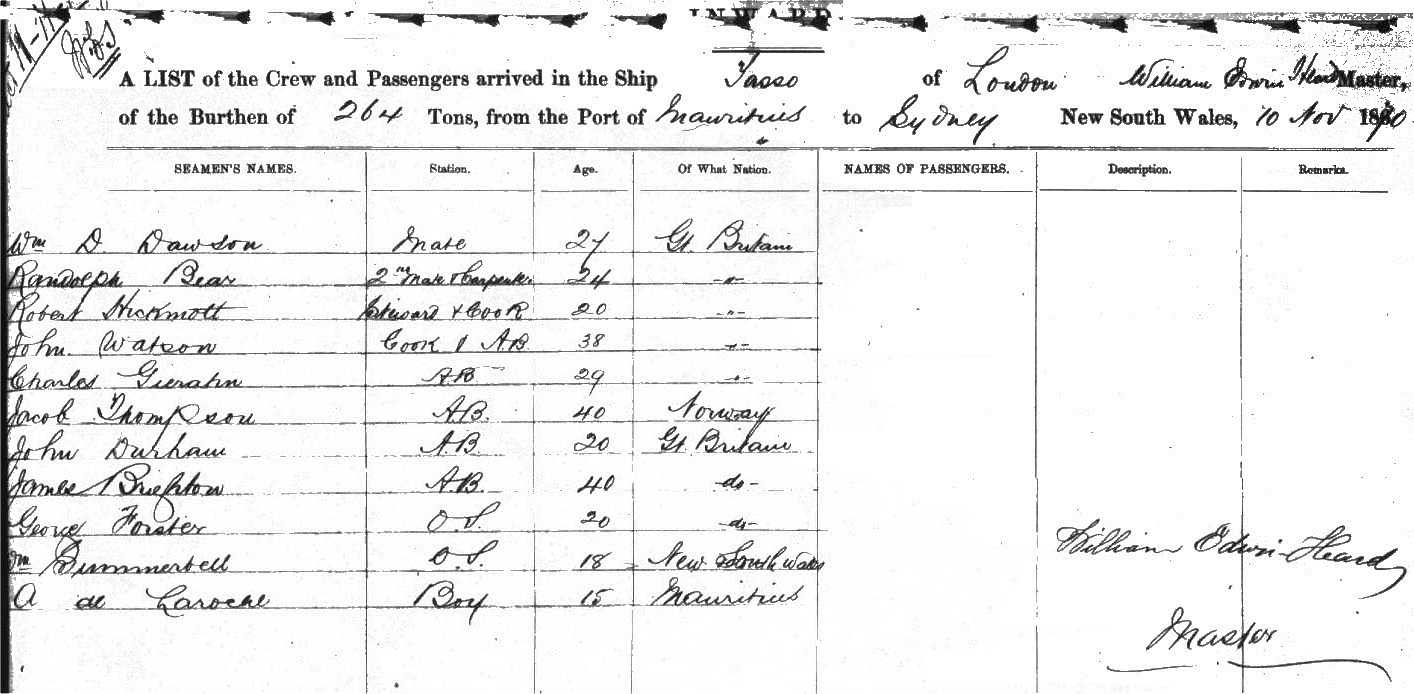 INWARD.
A LIST of the Crew and Passengers arrived in the Ship Tasso of London William Edwin Heard Master,
of the Burthen of 264 Tons, from the Port of Mauritius to Sydney New South Wales, 10 Nov 1870
SEAMEN'S NAMES. Station. Age. Of What Nation. NAMES OF PASSENGERS. Description. Remarks.
Wm D. Dawson Mate 27 Gt. Britain
Randolph Bear 2nd Mate & Carpenter 24 -"-
Robert Hickmott Steward & Cook 20 -"-
John Watson Cook & AB 38 -"-
Charles Gierahn A.B 29 -"-
Jacob Thompson A.B. 40 Norway
John Durham A.B. 20 Gt. Britain
James Brighton A.B. 40 -do-
George Forster O.S. 20 -do-
Wm Summerbell O.S. 18 New South Wales
A de Laroche Boy 15 Mauritius
William Edwin Heard
Master